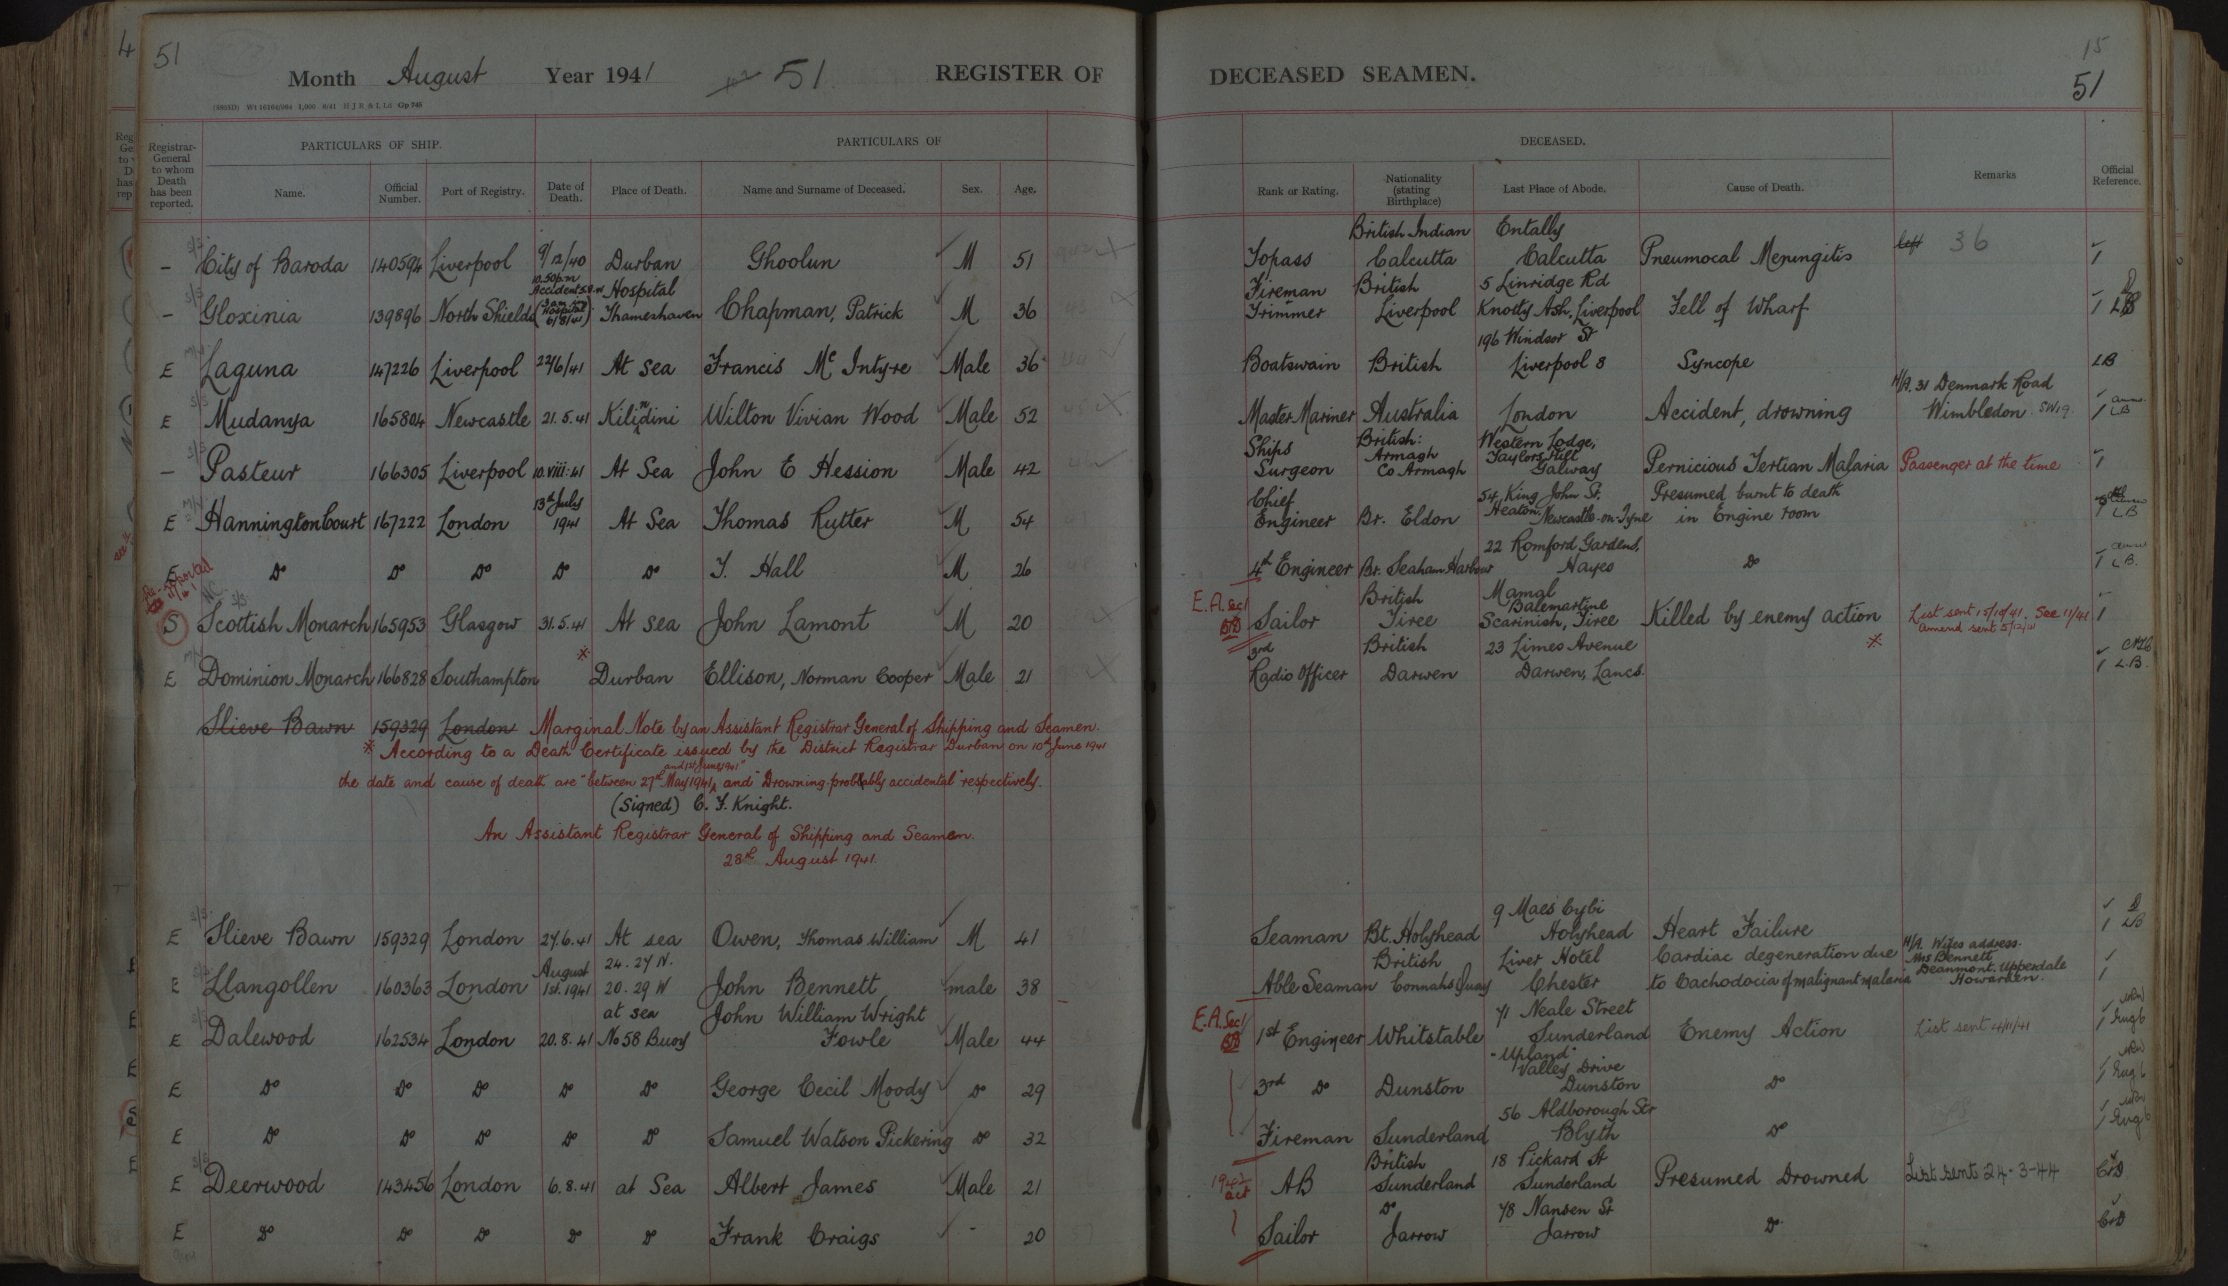 51
Month August Year 1941 51 REGISTER OF DECEASED SEAMEN. 15
51
Registrar-General to whom Death has been reported.
PARTICULARS OF SHIP. PARTICULARS OF DECEASED.
Name. Official Number. Port of Registry. Date of Death. Place of Death. Name and Surname of Deceased. Sex. Age. Rank or Rating. Nationality (stating Birthplace) Last Place of Abode. Cause of Death. Remarks Official Reference.
– S/S City of Baroda 140594 Liverpool 9/12/40 Durban Ghoolun M 51 Topass British Indian Calcutta Entally Calcutta Pneumocal Meningitis left 36
– S/S Gloxinia 139896 North Shields 10.50 pm Accident (Hospital 6/8/41) Hospital Thameshaven Chapman, Patrick M 36 Fireman Trimmer British Liverpool 5 Linridge Rd Knotty Ash, Liverpool Fell of Wharf LB
E M/V Laguna 147226 Liverpool 22/6/41 At Sea Francis Mc Intyre Male 36 Boatswain British 196 Windsor St Liverpool 8 Syncope LB
E S/S Mudanya 165804 Newcastle 21.5.41 Kilindini Wilton Vivian Wood Male 52 Master Mariner Australia London Accident, drowning H/A. 31 Denmark Road Wimbledon SW19 LB
– S/S Pasteur 166305 Liverpool 10.viii.41 At Sea John E Hession Male 42 Ships Surgeon British: Armagh Co Armagh Western Lodge, Taylors Hill Galway Pernicious Tertian Malaria Passenger at the time
E M/V Hannington Court 167222 London 13th July 1941 At Sea Thomas Rutter M 54 Chief Engineer Br. Eldon 54, King John St, Heaton, Newcastle-on-Tyne Presumed burnt to death in Engine room LB
E Do Do Do Do Do T. Hall M 26 4th Engineer Br. Seaham Harbour 22 Romford Gardens, Hayes Do LB.
S S/S Scottish Monarch 165953 Glasgow 31.5.41 At sea John Lamont M 20 E.A. Sec1 Sailor British Tiree Mamal Balemartine Scarinish, Tiree Killed by enemy action List sent 15/10/41. See 11/41 amend sent 5/12/41
E M/V Dominion Monarch 166828 Southampton * Durban Ellison, Norman Cooper Male 21 3rd Radio Officer British Darwen 23 Limes Avenue Darwen, Lancs. * L.B.
Slieve Bawn 159329 London Marginal Note by an Assistant Registrar General of Shipping and Seamen.
* According to a Death Certificate issued by the District Registrar Durban on 10th June 1941
the date and cause of death are "between 27th May 1941 and 1st June, 1941" and "Drowning-probably accidental" respectively.
(Signed) C. F. Knight.
An Assistant Registrar General of Shipping and Seamen.
28th August 1941.
E S/S Slieve Bawn 159329 London 24.6.41 At sea Owen, Thomas William M 41 Seaman Bt. Holyhead 9 Maes Cybi Holyhead Heart Failure LB
E S/S Llangollen 160363 London August 1st. 1941 24.24 N. 20.29 W at sea John Bennett male 38 Able Seaman British Connahs Quay Liver Hotel Chester Cardiac degeneration due to Cachodocia of malignant malaria H/A. Wifes address. Mrs Bennett Deanmont. Upperdale Howarden.
E S/S Dalewood 162534 London 20.8.41 No 58 Buoy John William Wright Fowle Male 44 E.A. Sec1 1st Engineer Whitstable 71 Neale Street Sunderland Enemy Action List sent 4/11/41
E Do Do Do Do Do George Cecil Moody Do 29 3rd Do Dunston "Upland" Valley Drive Dunston Do
E Do Do Do Do Do Samuel Watson Pickering Do 32 Fireman Sunderland 56 Aldborough Str Blyth Do
E S/S Deerwood 143456 London 6.8.41 at Sea Albert James Male 21 AB British Sunderland 18 Pickard St Sunderland Presumed Drowned List sent 24-3-44
E Do Do Do Do Do Frank Craigs - 20 Sailor Do Jarrow 78 Nansen St Jarrow Do